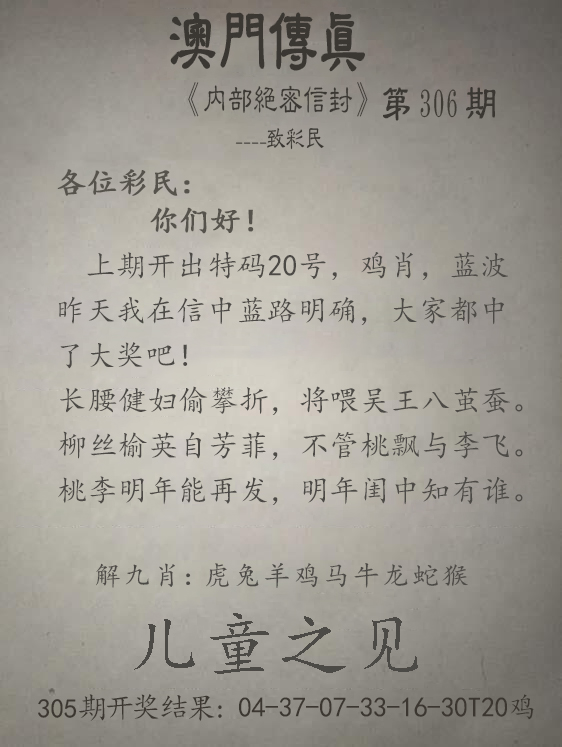 澳門傳眞
《内部絕密信封》第306期
----致彩民
各位彩民：
你们好！
上期开出特码20号，鸡肖，蓝波
昨天我在信中蓝路明确，大家都中
了大奖吧！
长腰健妇偷攀折，将喂吴王八茧蚕。
柳丝榆英自芳菲，不管桃飘与李飞。
桃李明年能再发，明年闺中知有谁。
解九肖：虎兔羊鸡马牛龙蛇猴
儿童之见
305期开奖结果：04-37-07-33-16-30T20鸡